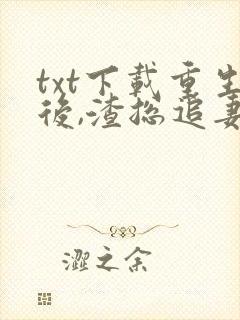 txt下載重生
後,渣總追妻
澀之余